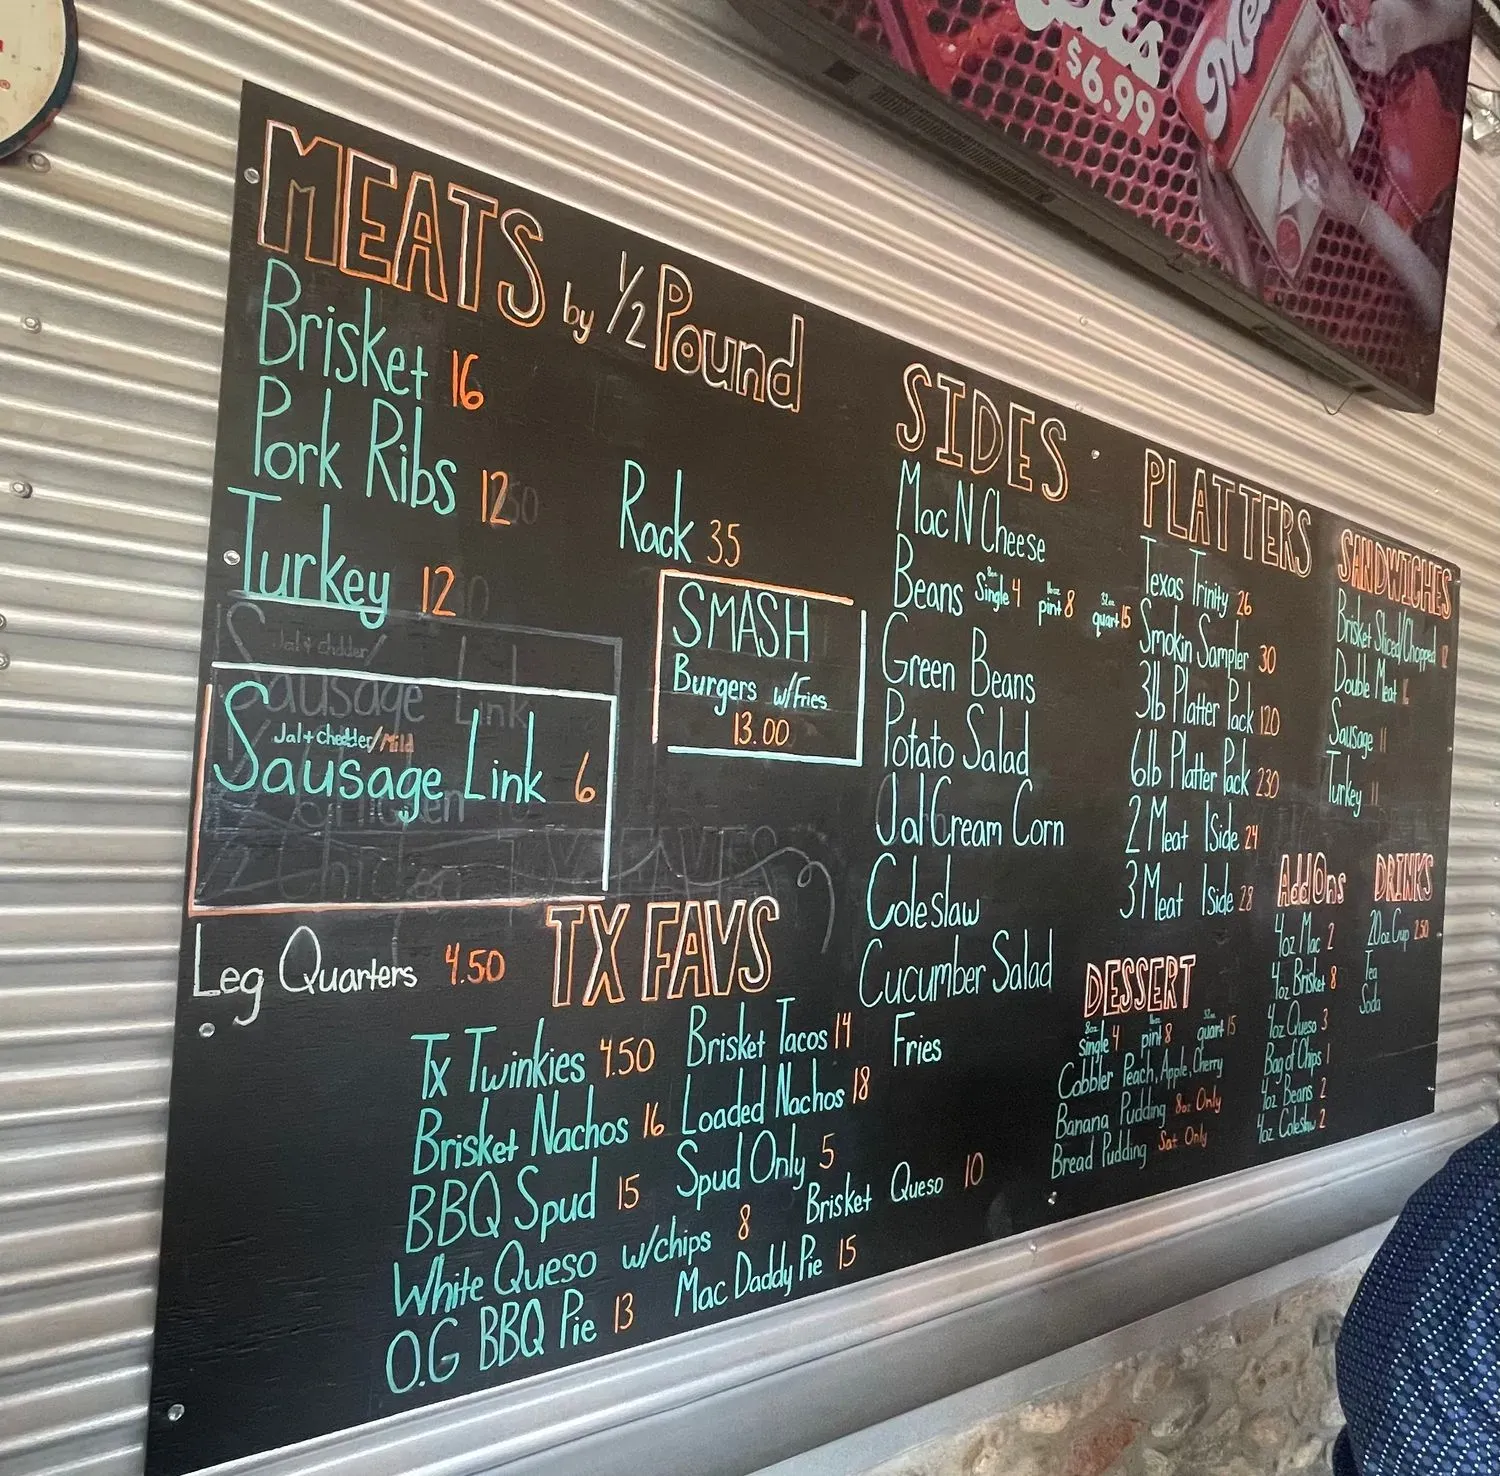 $6.99
MEATS by 1/2 Pound
Brisket 16
Pork Ribs 12
Rack 35
Turkey 12
Jal + Chedder/Mild
Sausage Link 6
Leg Quarters 4.50
SMASH
Burgers w/Fries
13.00
TX FAVS
Tx Twinkies 4.50 Brisket Tacos 14
Brisket Nachos 16 Loaded Nachos 18
BBQ Spud 15 Spud Only 5
White Queso w/chips 8 Brisket Queso 10
O.G BBQ Pie 13 Mac Daddy Pie 15
SIDES
Mac N Cheese
Beans 8oz Single 4 16oz pint 8 32oz quart 15
Green Beans
Potato Salad
Jal Cream Corn
Coleslaw
Cucumber Salad
Fries
PLATTERS
Texas Trinity 26
Smokin Sampler 30
3lb Platter Pack 120
6lb Platter Pack 230
2 Meat 1 Side 24
3 Meat 1 Side 28
DESSERT
8oz Single 4 16oz pint 8 32oz quart 15
Cobbler Peach, Apple, Cherry
Banana Pudding 8oz Only
Bread Pudding Sat Only
SANDWICHES
Brisket Sliced/Chopped 12
Double Meat 16
Sausage 11
Turkey 11
AddOns
4oz Mac 2
4oz Brisket 8
4oz Queso 3
Bag of Chips 1
4oz Beans 2
4oz Coleslaw 2
DRINKS
20oz Cup 2.50
Tea
Soda